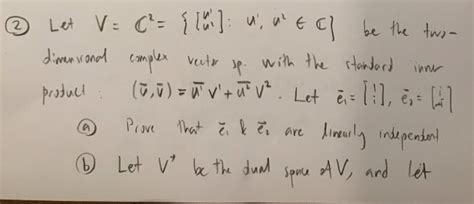 ② Let V = ℂ² = { [u¹ u²] : u¹, u² ∈ ℂ } be the two-
dimensional complex vector sp. with the standard inner
product : (ū, v̄) = u̅¹ v¹ + u̅² v² . Let ē₁ = [ ], ē₂ = [ ]
ⓐ Prove that ē₁ & ē₂ are linearly independent
ⓑ Let V* be the dual space of V, and let